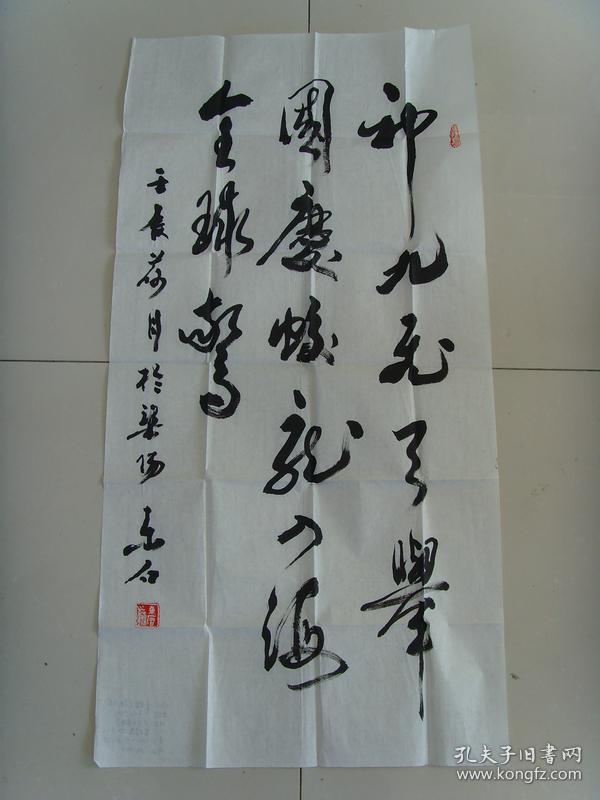 神九飛天舉
國慶蛟龍入海
全球驚
壬辰荷月於滎陽东石
孔夫子旧書网
www.kongfz.com